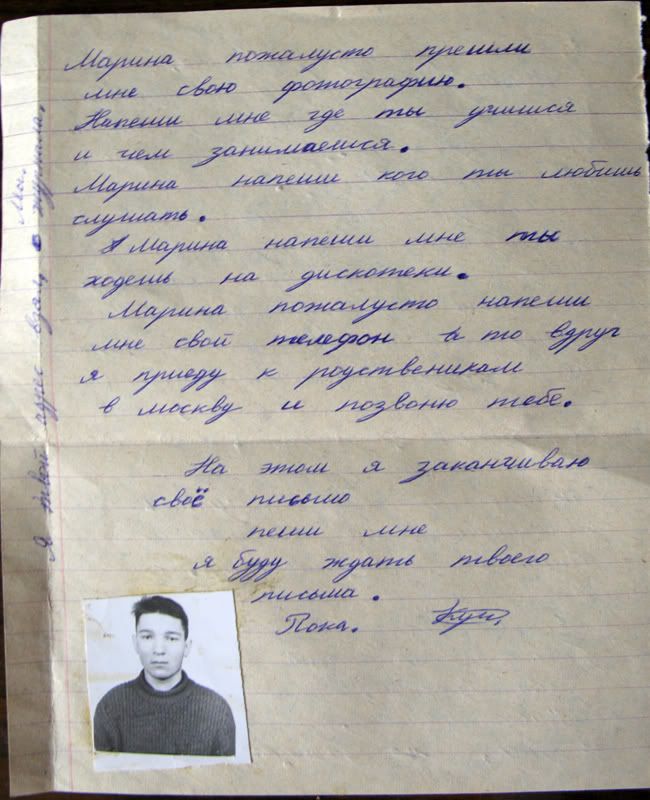 Марина пожалусто прешли
мне свою фотографию.
Напеши мне где ты учишся
и чем занимаешся.
Марина напеши кого ты любишь
слушать.
Марина напеши мне ты
ходешь на дискотеки.
Марина пожалусто напеши
мне свой телефон а то вдруг
я приеду к родственикам
в москву и позвоню тебе.
На этом я заканчиваю
своё письмо
пеши мне
я буду ждать твоего
письма.
Пока.
Я твой адрес взял с журнала.